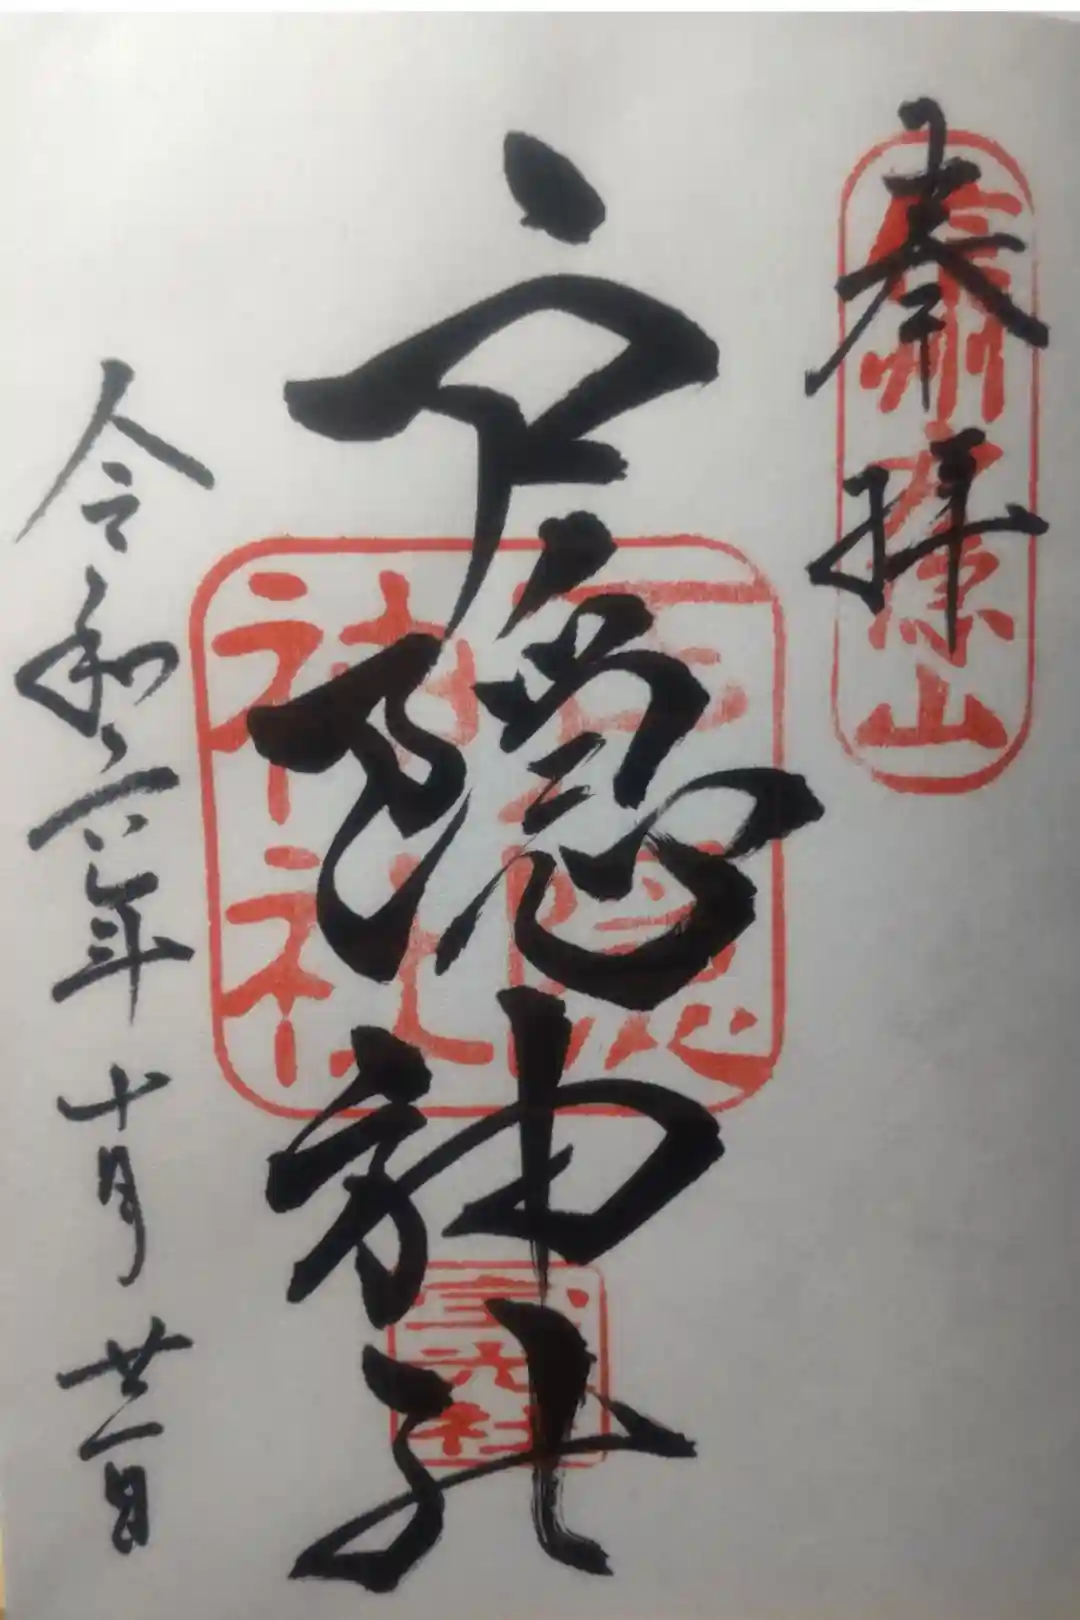 奉拝
信州戸隠山
戸隠神社
戸隠
神社
宝光社
令和六年十月廿一日